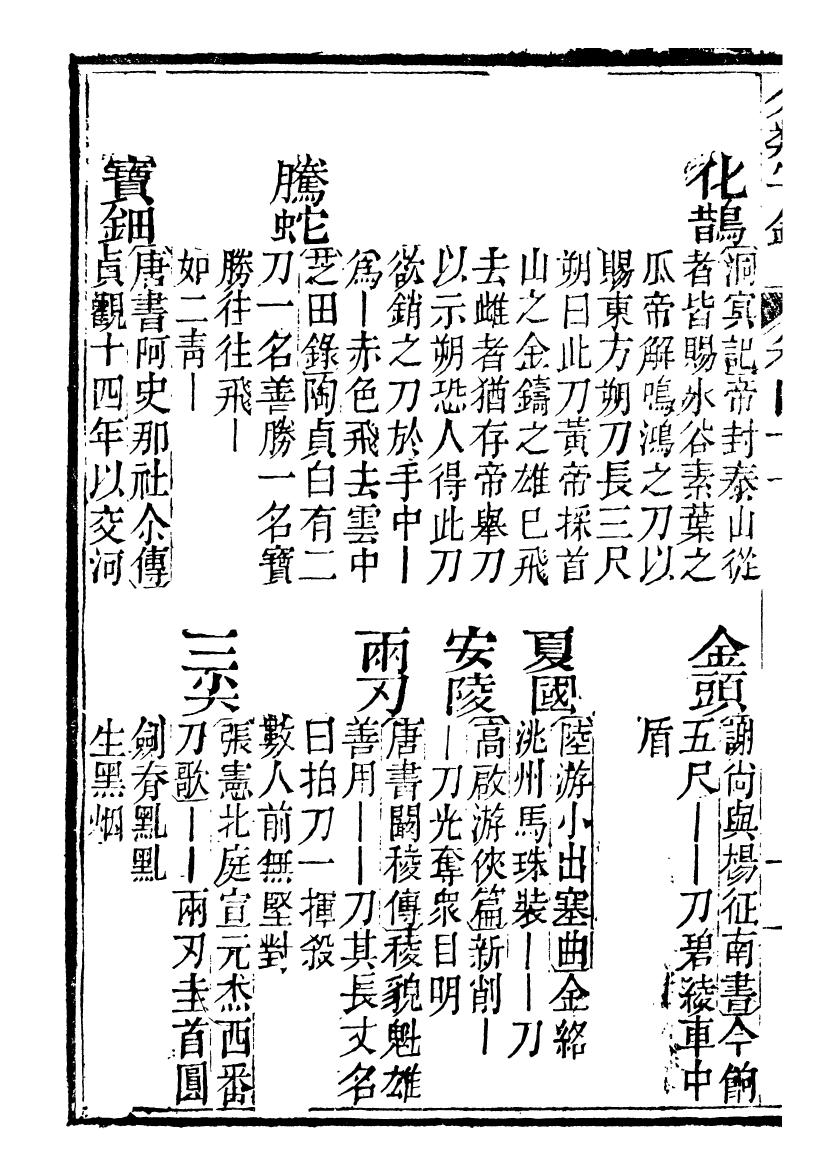 化鵲
洞㝠記帝封泰山從
者皆賜氷谷素葉之
瓜帝解鳴鴻之刀以
賜東方朔刀長三尺
朔曰此刀黃帝採首
山之金鑄之雄已飛
去雌者猶存帝舉刀
以示朔恐人得此刀
欲銷之刀於手中丨
爲丨赤色飛去雲中
騰蛇
芝田錄陶貞白有二
刀一名善勝一名寶
勝往往飛丨
如二靑丨
寶鈿
唐書阿史那社尒傳
貞觀十四年以交河
金頭
謝尙與楊征南書今餉
五尺丨丨刀碧綾車中
盾
夏國
陸游小出塞曲金絡
洮州馬珠裝丨丨刀
安陵
高啟游俠篇新削丨
丨刀光奪衆目明
兩刃
唐書闞稜傳稜貌魁雄
善用丨丨刀其長丈名
曰拍刀一揮殺
數人前無堅對
三尖
張憲北庭宣元杰西番
刀歌丨丨兩刃圭首圓
劍脊黑黑
生黑烟